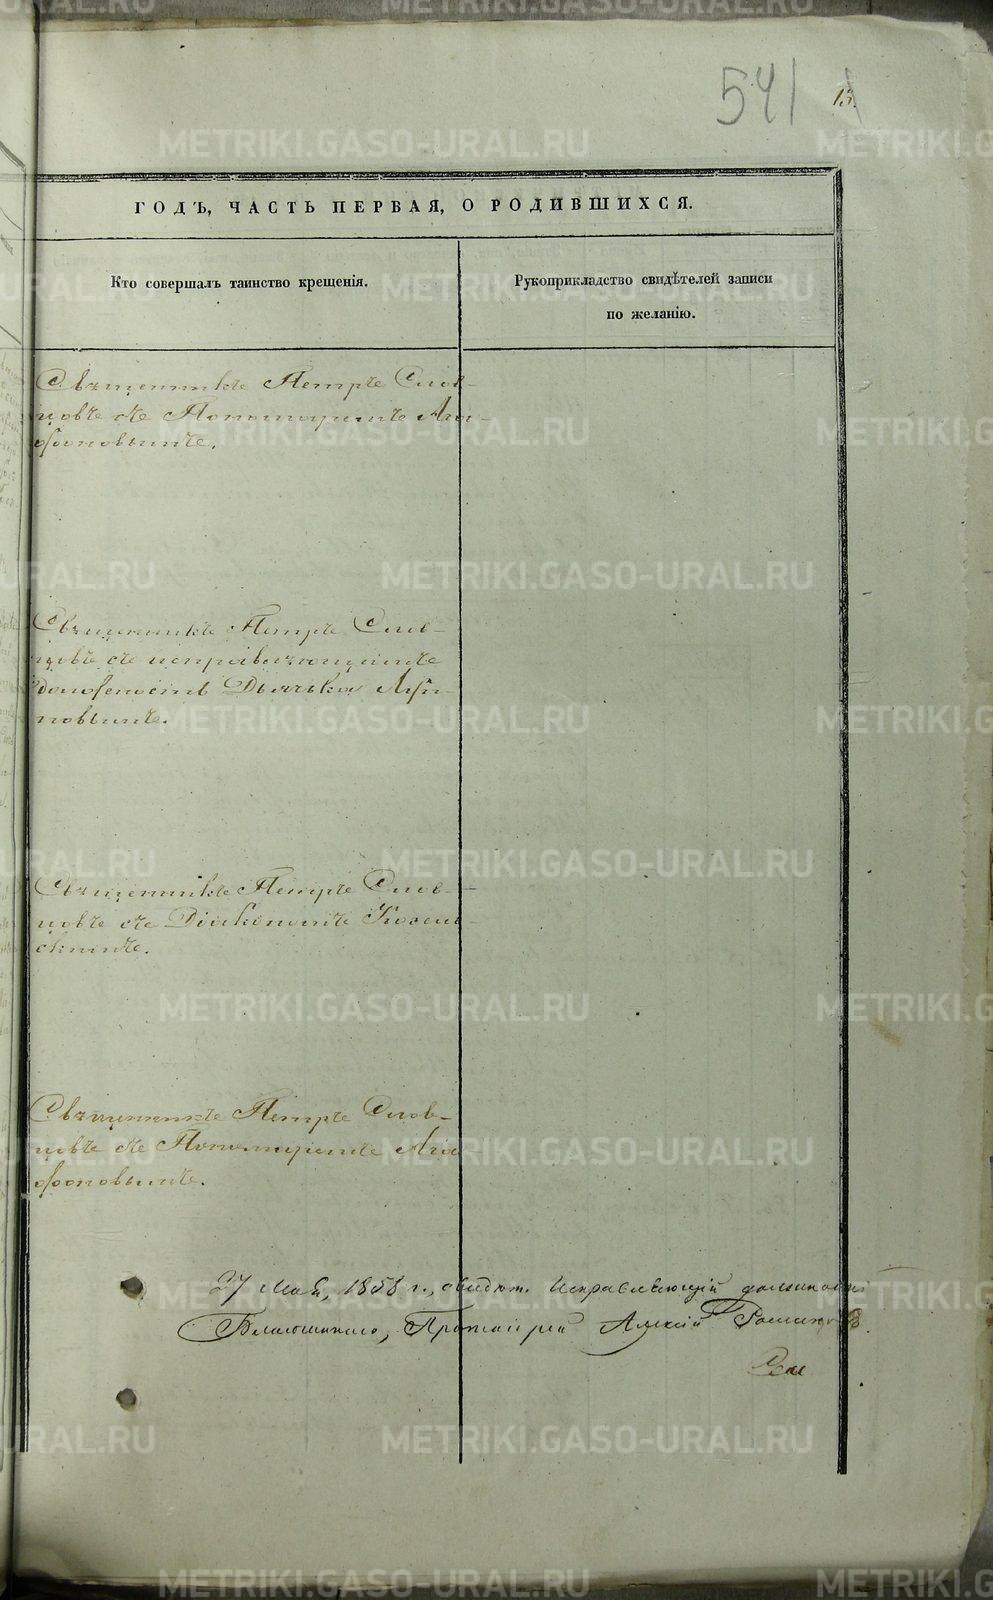 541
13.
ГОДЪ, ЧАСТЬ ПЕРВАЯ, О РОДИВШИХСЯ.
Кто совершалъ таинство крещенія.
Рукоприкладство свидѣтелей записи
по желанію.
Священникъ Петръ Слов-
цовъ съ Пономаремъ Ага-
фоновымъ.
Священникъ Петръ Слов-
цовъ съ исправляющимъ
должность Дьячька
новымъ.
Священникъ Петръ Слов-
цовъ съ Діакономъ
скимъ.
Священникъ Петръ Слов-
цовъ съ Пономаремъ Ага
фоновымъ.
27 Мая, 1858 г., свидѣт. Исправляющій должность
Благочиннаго, Протоіерей Алексій
METRIKI.GASO-URAL.RU